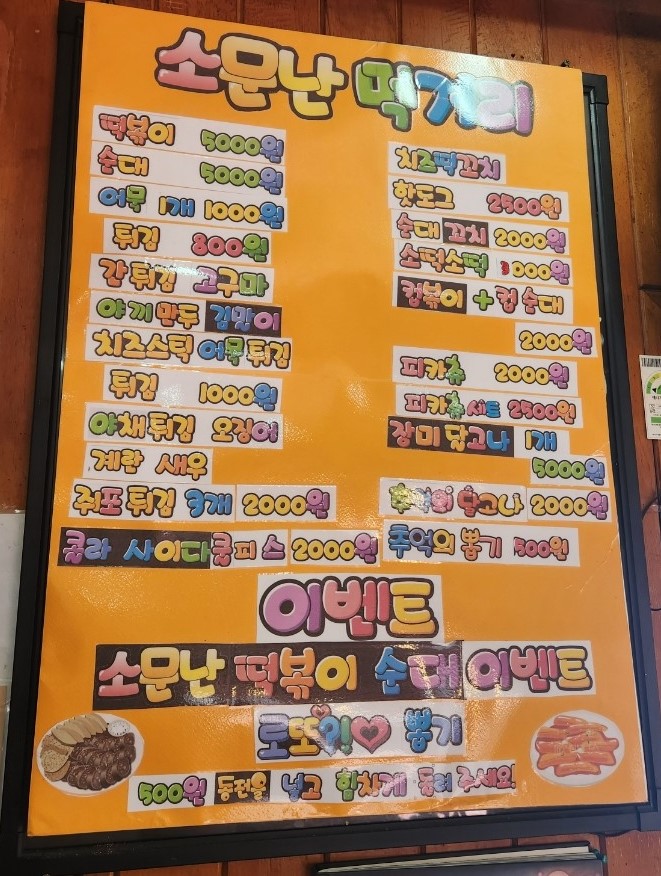 소문난 떡거리
떡볶이 5000원
순대 5000원
어묵 1개 1000원
튀김 800원
간튀김 고구마
야끼만두 김말이
치즈스틱 어묵튀김
튀김 1000원
야채튀김 오징어
계란 새우
쥐포튀김 3개 2000원
콜라 사이다쿨피스 2000원
치즈떡꼬치
핫도그 2500원
순대 꼬치 2000원
소떡소떡 3000원
컵볶이 + 컵순대
2000원
피카츄 2000원
피카츄 세트 2500원
장미 달고나 1개
5000원
추억의 달고나 2000원
추억의 뽑기 500원
이벤트
소문난 떡볶이 순대 이벤트
로또의 뽑기
500원 동전을 넣고 힘차게 돌려 주세요!